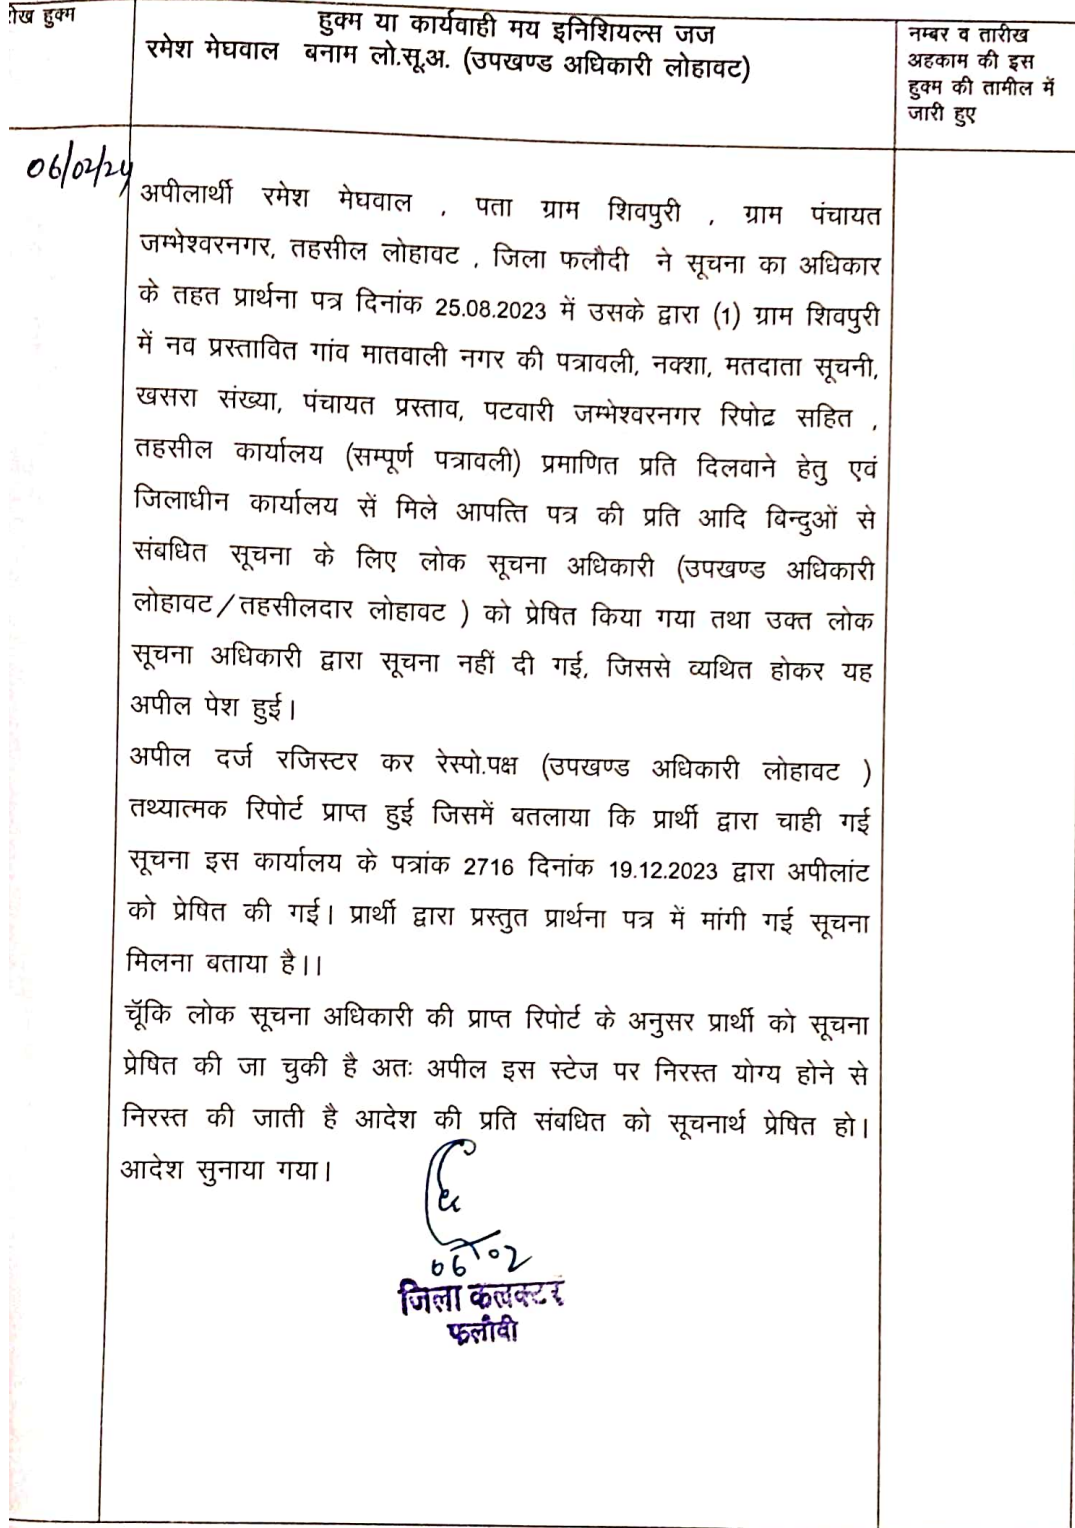 रीख हुक्म
हुक्म या कार्यवाही मय इनिशियल्स जज
रमेश मेघवाल बनाम लो.सू.अ. (उपखण्ड अधिकारी लोहावट)
नम्बर व तारीख
अहकाम की इस
हुक्म की तामील में
जारी हुए
06/02/24
अपीलार्थी रमेश मेघवाल , पता ग्राम शिवपुरी , ग्राम पंचायत
जम्भेश्वरनगर, तहसील लोहावट , जिला फलौदी ने सूचना का अधिकार
के तहत प्रार्थना पत्र दिनांक 25.08.2023 में उसके द्वारा (1) ग्राम शिवपुरी
में नव प्रस्तावित गांव मातवाली नगर की पत्रावली, नक्शा, मतदाता सूचनी,
खसरा संख्या, पंचायत प्रस्ताव, पटवारी जम्भेश्वरनगर रिपोट सहित ,
तहसील कार्यालय (सम्पूर्ण पत्रावली) प्रमाणित प्रति दिलवाने हेतु एवं
जिलाधीन कार्यालय सें मिले आपत्ति पत्र की प्रति आदि बिन्दुओं से
संबधित सूचना के लिए लोक सूचना अधिकारी (उपखण्ड अधिकारी
लोहावट/तहसीलदार लोहावट ) को प्रेषित किया गया तथा उक्त लोक
सूचना अधिकारी द्वारा सूचना नहीं दी गई, जिससे व्यथित होकर यह
अपील पेश हुई।
अपील दर्ज रजिस्टर कर रेस्पो.पक्ष (उपखण्ड अधिकारी लोहावट )
तथ्यात्मक रिपोर्ट प्राप्त हुई जिसमें बतलाया कि प्रार्थी द्वारा चाही गई
सूचना इस कार्यालय के पत्रांक 2716 दिनांक 19.12.2023 द्वारा अपीलांट
को प्रेषित की गई। प्रार्थी द्वारा प्रस्तुत प्रार्थना पत्र में मांगी गई सूचना
मिलना बताया है।।
चूॅकि लोक सूचना अधिकारी की प्राप्त रिपोर्ट के अनुसर प्रार्थी को सूचना
प्रेषित की जा चुकी है अतः अपील इस स्टेज पर निरस्त योग्य होने से
निरस्त की जाती है आदेश की प्रति संबधित को सूचनार्थ प्रेषित हो।
आदेश सुनाया गया।
06 02
जिला कलक्टर
फलौदी